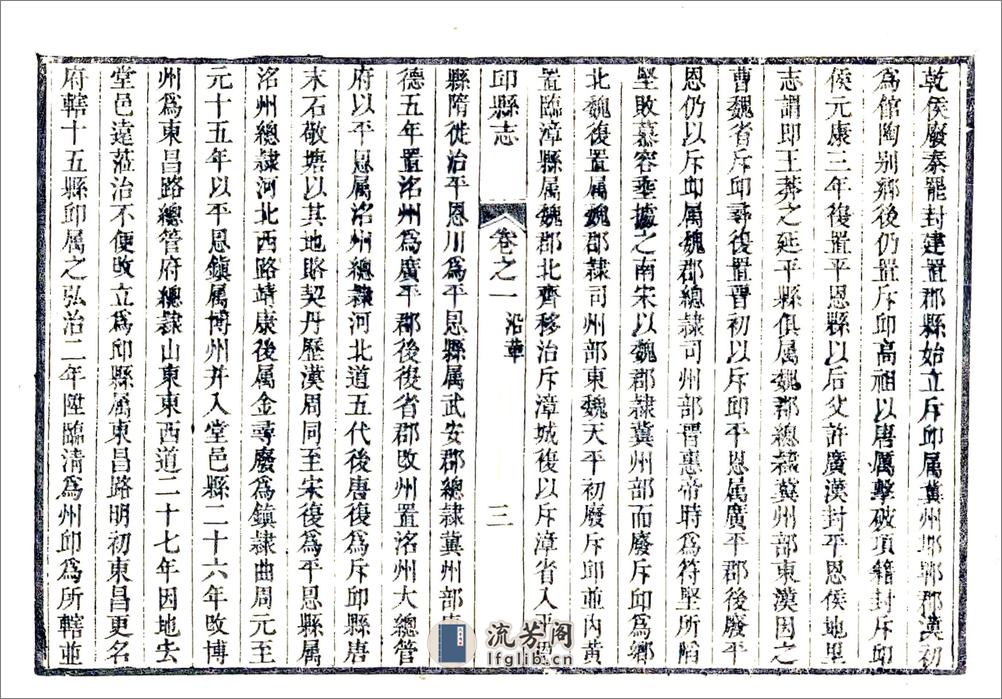 乾侯廢秦罷封建置郡縣始立斥邱属冀州邯鄲郡漢初
爲館陶别鄉後仍置斥邱高祖以唐厲擊破項籍封斥邱
侯元康三年複置平恩縣以后父許廣漢封平恩侯地里
志謂即王莽之延平縣俱属魏郡總隷冀州部東漢因之
曹魏省斥邱尋復置晋初以斥邱平恩属廣平郡後廢平
恩仍以斥邱属魏郡總隷司州部晋惠帝時爲符堅所陷
堅敗慕容垂據之南宋以魏郡隷冀州部而廢斥邱爲鄉
北魏復置属魏郡隷司州部東魏天平初廢斥邱並内黄
置臨漳縣属魏郡北齊移治斥漳城復以斥漳省入平恩
邱縣志
卷之一
沿革
三
縣隋徙治平恩川爲平恩縣属武安郡總隷冀州部
德五年置洺州爲廣平郡後復省郡改州置洺州大總管
府以平恩属洺州總隷河北道五代後唐復爲斥邱縣唐
末石敬塘以其地賂契丹歷漢周同至宋復爲平恩縣属
洺州總隷河北西路靖康後属金尋廢爲鎮隷曲周元至
元十五年以平恩鎮属博州并入堂邑縣二十六年改博
州爲東昌路總管府總隷山東東西道二十七年因地去
堂邑遠蒞治不便改立爲邱縣属東昌路明初東昌更名
府轄十五縣邱属之弘治二年陞臨清爲州邱爲所轄並
流芳阁
lfglib.cn